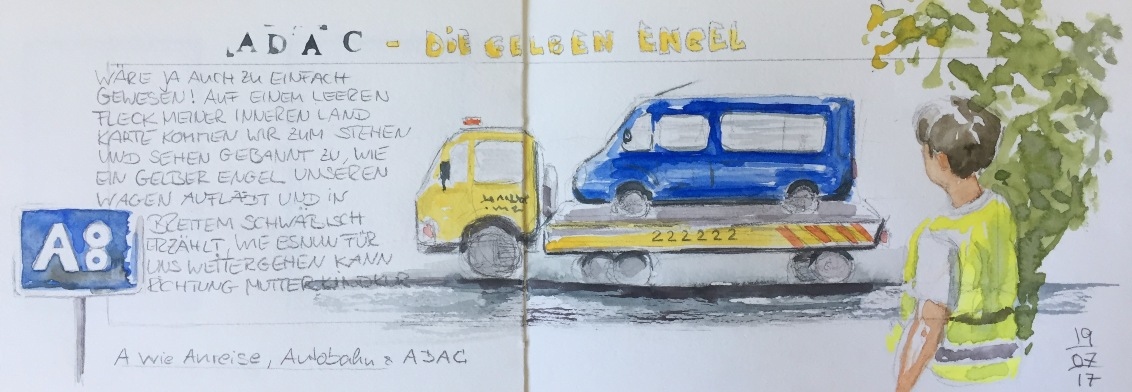 ADAC - DIE GELBEN ENGEL
WÄRE JA AUCH ZU EINFACH
GEWESEN! AUF EINEM LEEREN
FLECK MEINER INNEREN LAND
KARTE KOMMEN WIR ZUM STEHEN
UND SEHEN GEBANNT ZU, WIE
EIN GELBER ENGEL UNSEREN
WAGEN AUFLÄDT UND IN
BREITEM SCHWÄBISCH
ERZÄHLT, WIE ES NUN FÜR
UNS WEITERGEHEN KANN
RICHTUNG MUTTER KIND KUR
A8
222222
A wie Anreise, Autobahn & ADAC
19
07
17